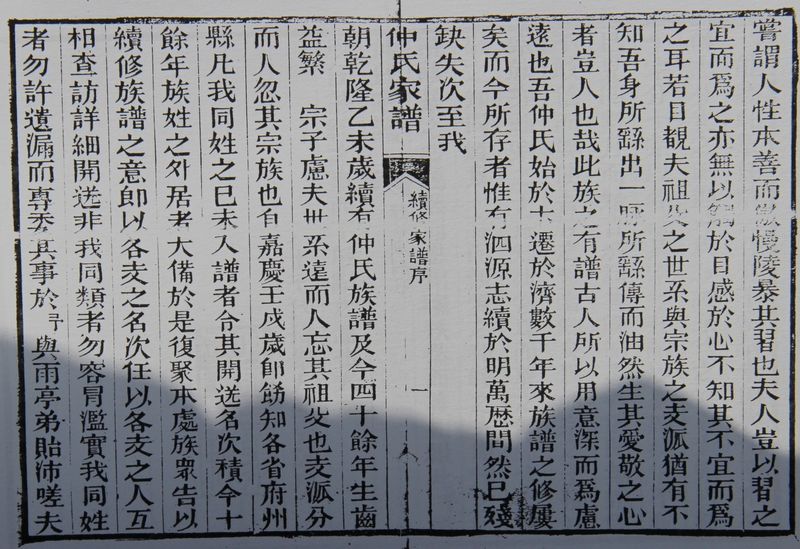 嘗謂人性本善而傲慢陵暴其習也夫人豈以習之
宜而為之亦無以觸於目感於心不知其不宜而為
之耳若目覩夫祖父之世系與宗族之支派猶有不
知吾身所繇出一脈所繇傳而油然生其愛敬之心
者豈人也哉此族之有譜古人所以用意深而為慮
遠也吾仲氏始於 遷於濟數千年來族譜之修屢
矣而今所存者惟有泗源志續於明萬歷間然已殘
缺失次至我
仲氏家譜
續修家譜序
一
朝乾隆乙未歲續有仲氏族譜及今四十餘年生齒
益繁 宗子慮夫世系遠而人忘其祖父也支派分
而人忽其宗族也自嘉慶壬戌歲卽飭知各省府州
縣凡我同姓之已未入譜者令其開送名次積今十
餘年族姓之外居者大備於是復聚本處族眾告以
續修族譜之意卽以各支之名次任以各支之人互
相查訪詳細開送非我同類者勿容冒濫實我同姓
者勿許遺漏而專委其事於予與雨亭弟貽沛嗟夫